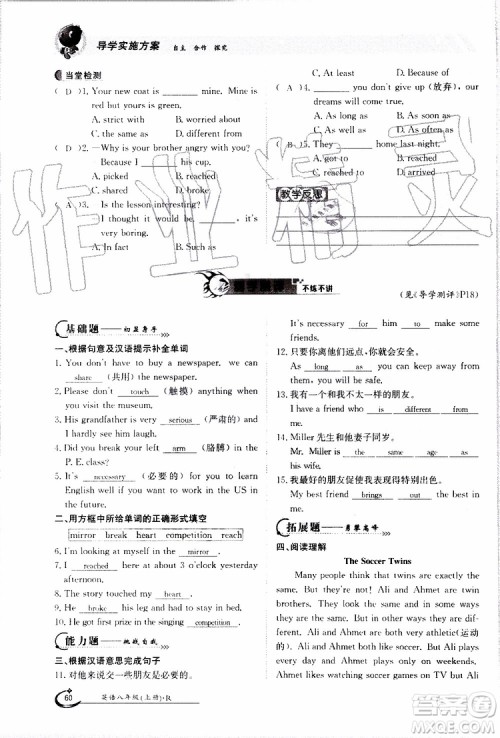 导学实施方案 自主 合作 探究
当堂检测
( D )1. Your new coat is ____ mine. Mine is
red but yours is green.
A. strict with B. worried about
C. the same as D. different from
( D )2. —Why is your brother angry with you?
Because I ____ his cup.
A. picked B. reached
C. shared D. broke
( A )3. Is the lesson interesting?
I thought it would be ____
A. In fact B. Such as
C. At least D. Because of
( A )4. ____ you don't give up (放弃), our
dreams will come true.
A. As long as B. As soon as
C. As well as D. As often as
( B )5. They ____ home last night.
A. got to B. reached
C. reached to D. arrived
教学反思
不练不讲
(见《导学测评》P18)
基础题 初显身手
一、根据句意及汉语提示补全单词
1. You don't have to buy a newspaper, we can
share (共用) this newspaper.
2. Please don't touch (触摸) anything when
you visit the museum.
3. His grandfather is very serious (严肃的) and
I hardly see him laugh.
4. Did you break your left arm (胳膊) in the
P. E. class?
5. It's necessary (必要的) for you to learn
English well if you want to work in the US in
the future.
二、用方框中所给单词的正确形式填空
mirror break heart competition reach
6. I am looking at myself in the mirror.
7. I reached here at about 3 o'clock yesterday
afternoon.
8. The story touched my heart.
9. He broke his leg and had to stay in bed.
10. He got first prize in the singing competition.
能力题 挑战自我
三、根据汉语意思完成句子
11. 对他来说,有必要努力学习。
It's necessary for him to
study hard.
12. 只要你离他们远点,你就会没事。
As long as you keep away from
them, you'll be safe.
13. 我有一个和我不太一样的朋友。
I have a friend who is different from
me.
14. Miller 先生和他妻子同岁。
Mr. Miller is as old as
his wife.
15. 我最好的朋友总是使我表现得特别出色。
My best friend brings out the best in me.
拓展题 勇攀高峰
四、阅读理解
The Soccer Twins
Many people think that Ali and Ahmet are twin
brothers. They're not, but Ali and Ahmet do look
the same. Both boys are very athletic(运动的)
and Ali and Ahmet often play soccer together
on weekends. They are good at it because Ali
60 英语八年级(上册)·R